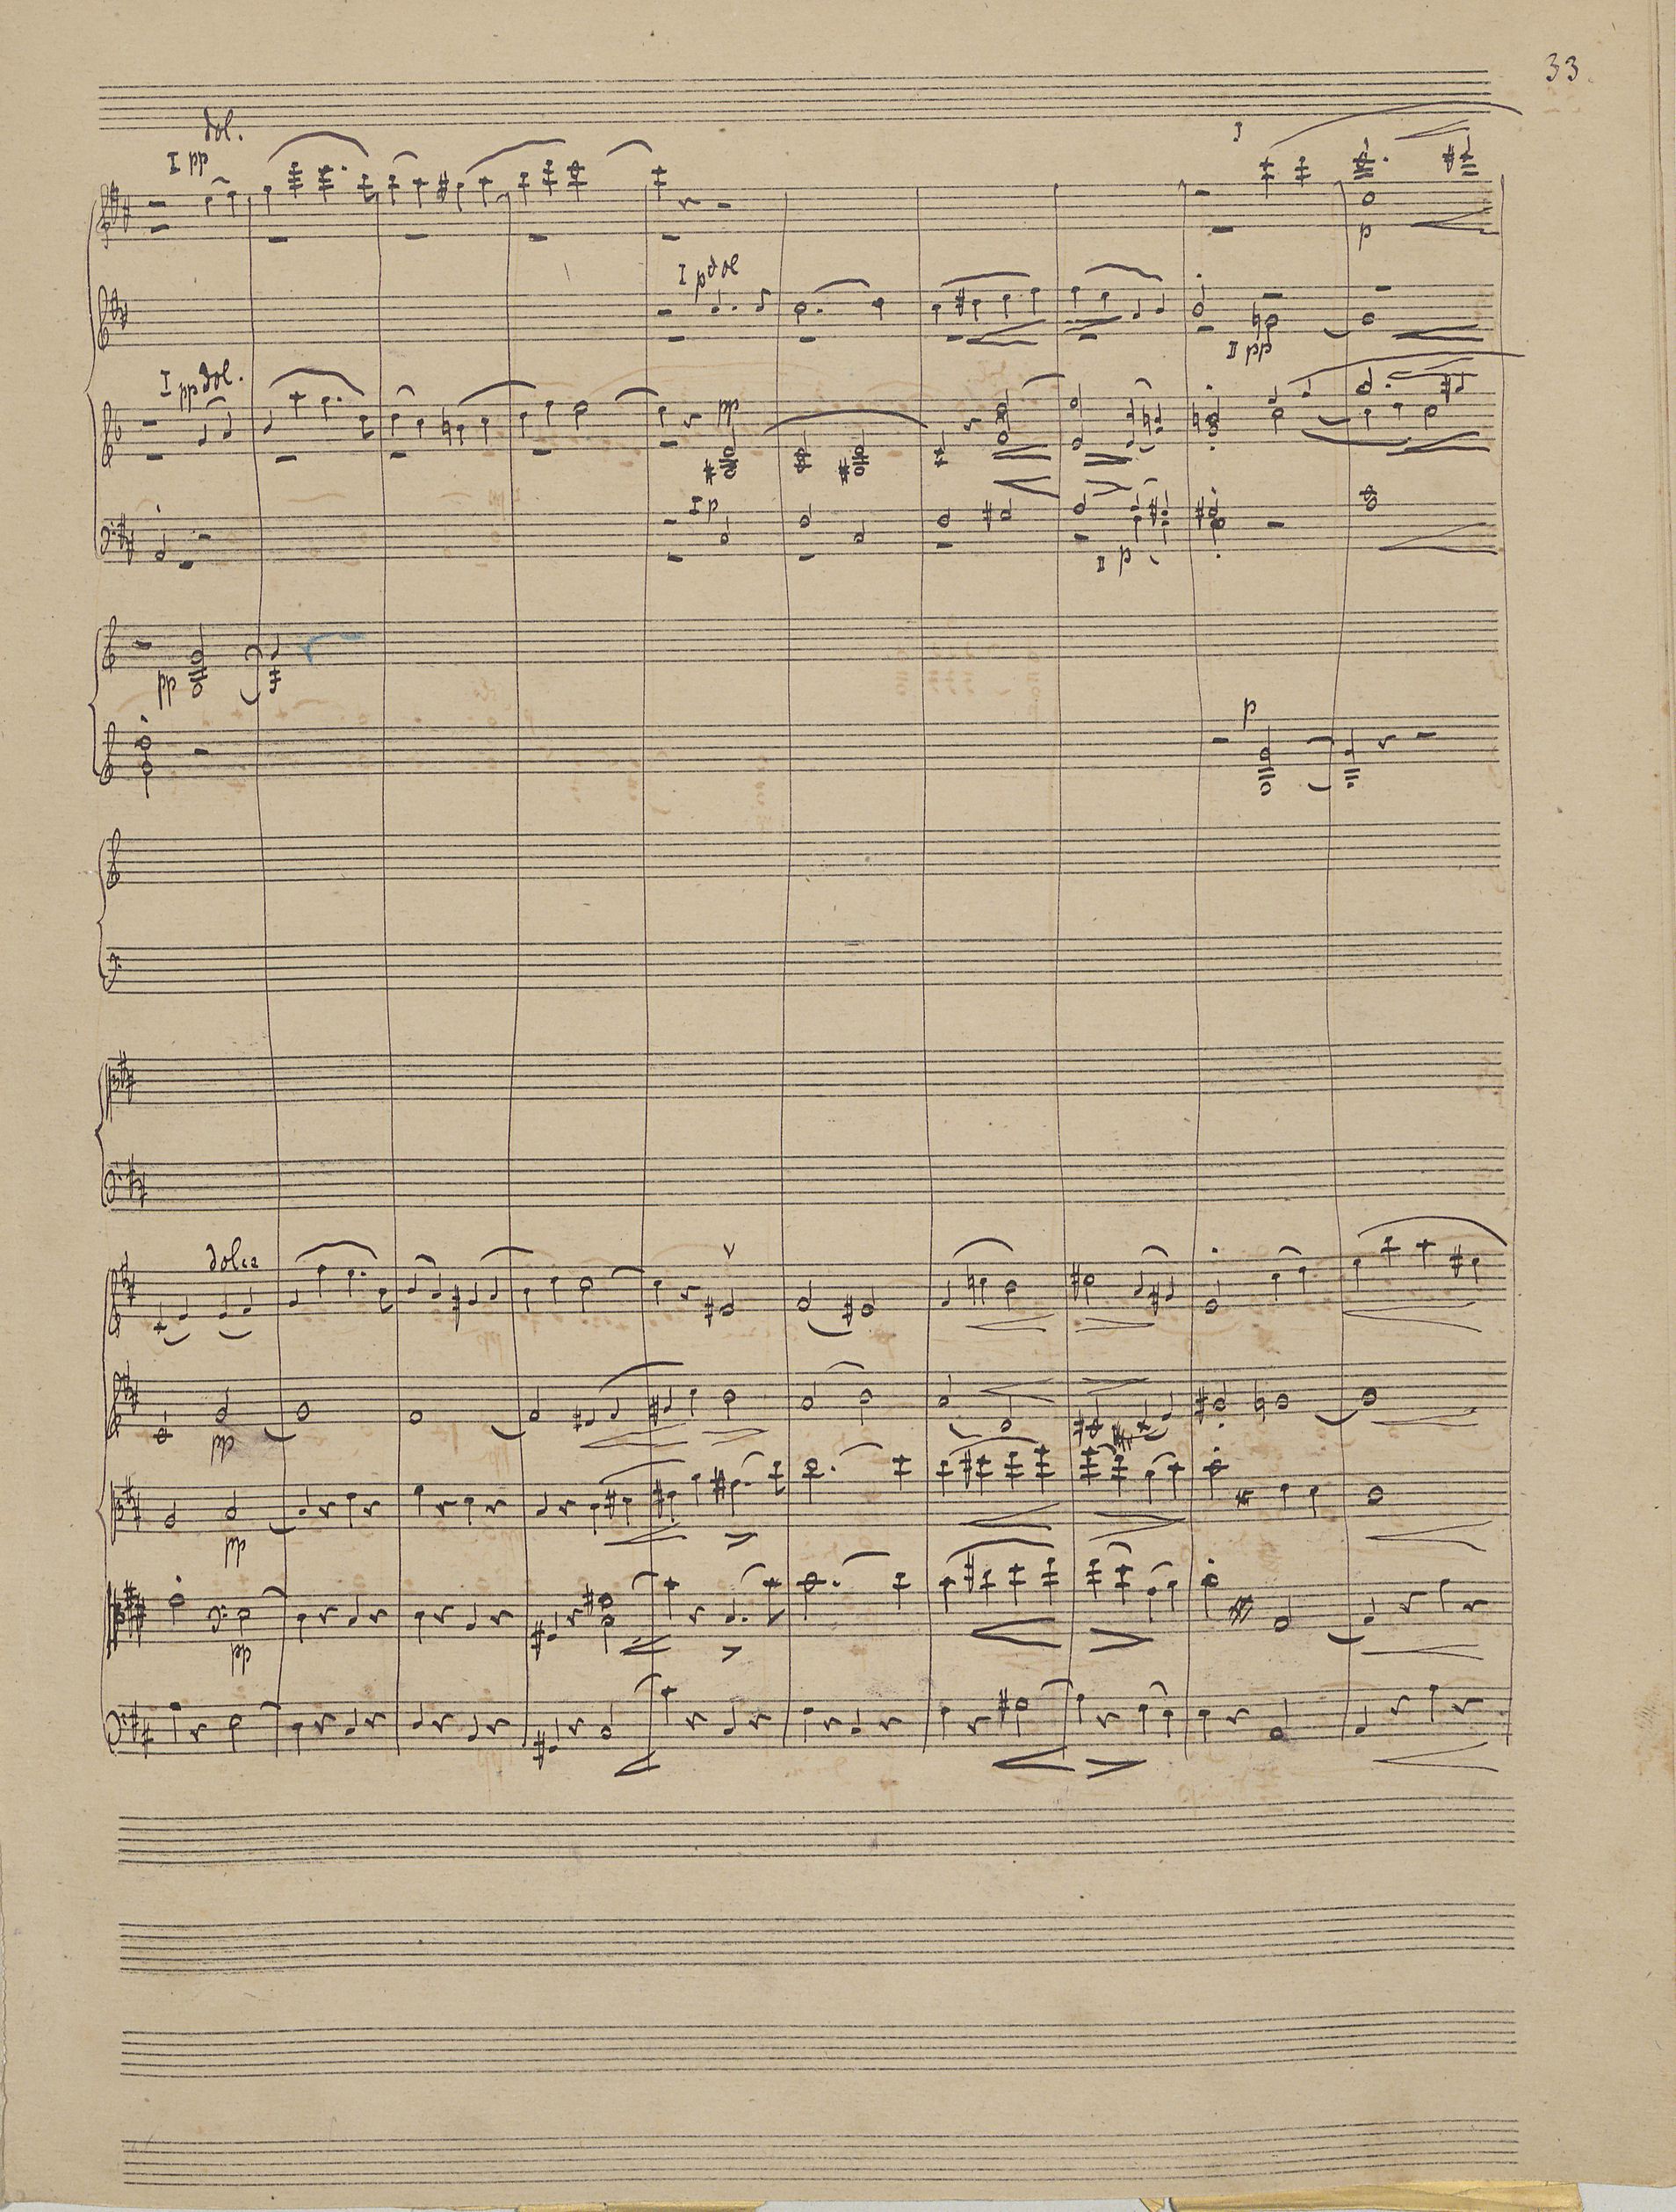 33
dol.
I pp
I
p
I p dol
II pp
I pp dol.
pp
I p
II p
pp
p
dolce
pp
pp
pp